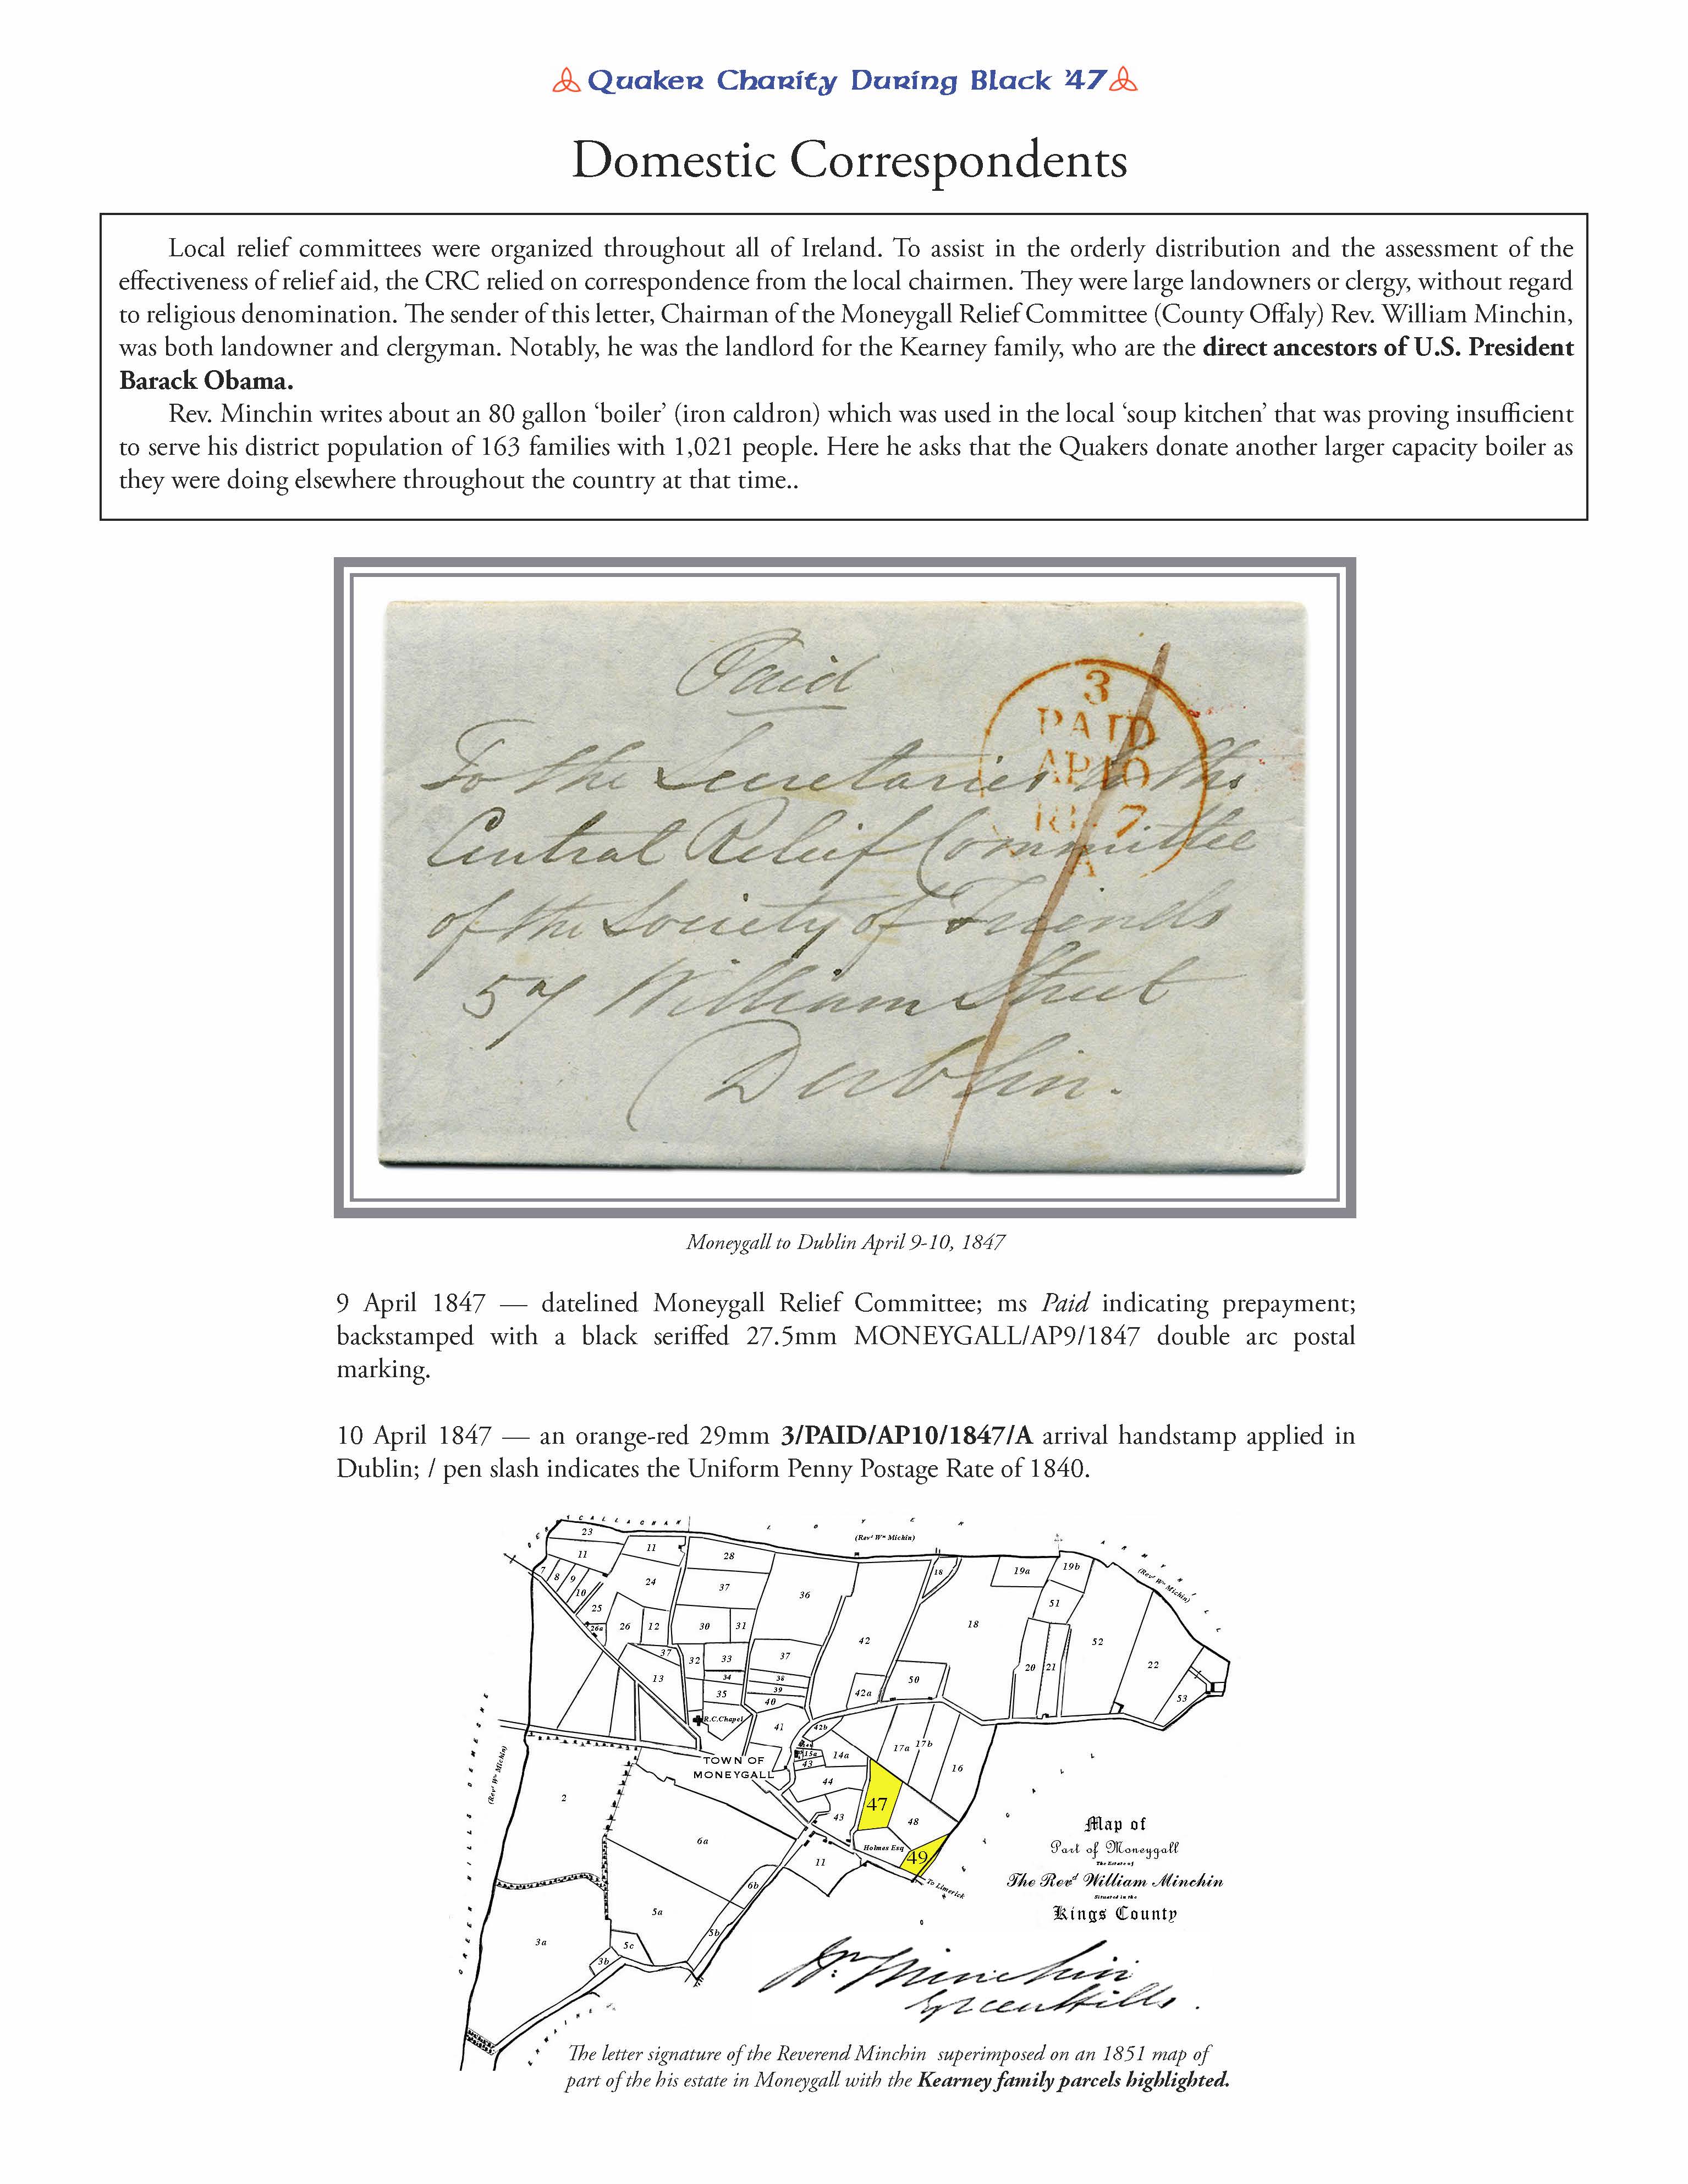 Quaker Charity During Black '47
Domestic Correspondents
Local relief committees were organized throughout all of Ireland. To assist in the orderly distribution and the assessment of the
effectiveness of relief aid, the CRC relied on correspondence from the local chairmen. They were large landowners or clergy, without regard
to religious denomination. The sender of this letter, Chairman of the Moneygall Relief Committee (County Offaly) Rev. William Minchin,
was both landowner and clergyman. Notably, he was the landlord for the Kearney family, who are the direct ancestors of U.S. President
Barack Obama.
Rev. Minchin writes about an 80 gallon ‘boiler’ (iron caldron) which was used in the local ‘soup kitchen’ that was proving insufficient
to serve his district population of 163 families with 1,021 people. Here he asks that the Quakers donate another larger capacity boiler as
they were doing elsewhere throughout the country at that time..
Paid
3
PAID
AP10
1847
A
To the Secretaries to the
Central Releif Committee
of the Society of Friends
57 William Street
Dublin.
Moneygall to Dublin April 9-10, 1847
9 April 1847 — datelined Moneygall Relief Committee; ms Paid indicating prepayment;
backstamped with a black seriffed 27.5mm MONEYGALL/AP9/1847 double arc postal
marking.
10 April 1847 — an orange-red 29mm 3/PAID/AP10/1847/A arrival handstamp applied in
Dublin; / pen slash indicates the Uniform Penny Postage Rate of 1840.
(Revd Wm Michin)
(Revd Wm Michin)
23
11
11
28
7
8
9
10
24
37
36
18
19a
19b
25
51
26a
26
12
30
31
42
18
52
37
32
33
37
13
34
38
20
21
22
35
39
50
42a
40
53
R.C.Chapel
41
42b
17a
17b
15a
14a
TOWN OF
MONEYGALL
43
16
(Revd Wm Michin)
44
2
47
43
48
6a
Holmes Esq
11
49
To Limerick
6b
5a
5b
3a
5c
3b
Map of
Part of Moneygall
The Estate of
The Revd William Minchin
Situated in the
Kings County
Wm: Minchin
Greenhills.
The letter signature of the Reverend Minchin superimposed on an 1851 map of
part of the his estate in Moneygall with the Kearney family parcels highlighted.